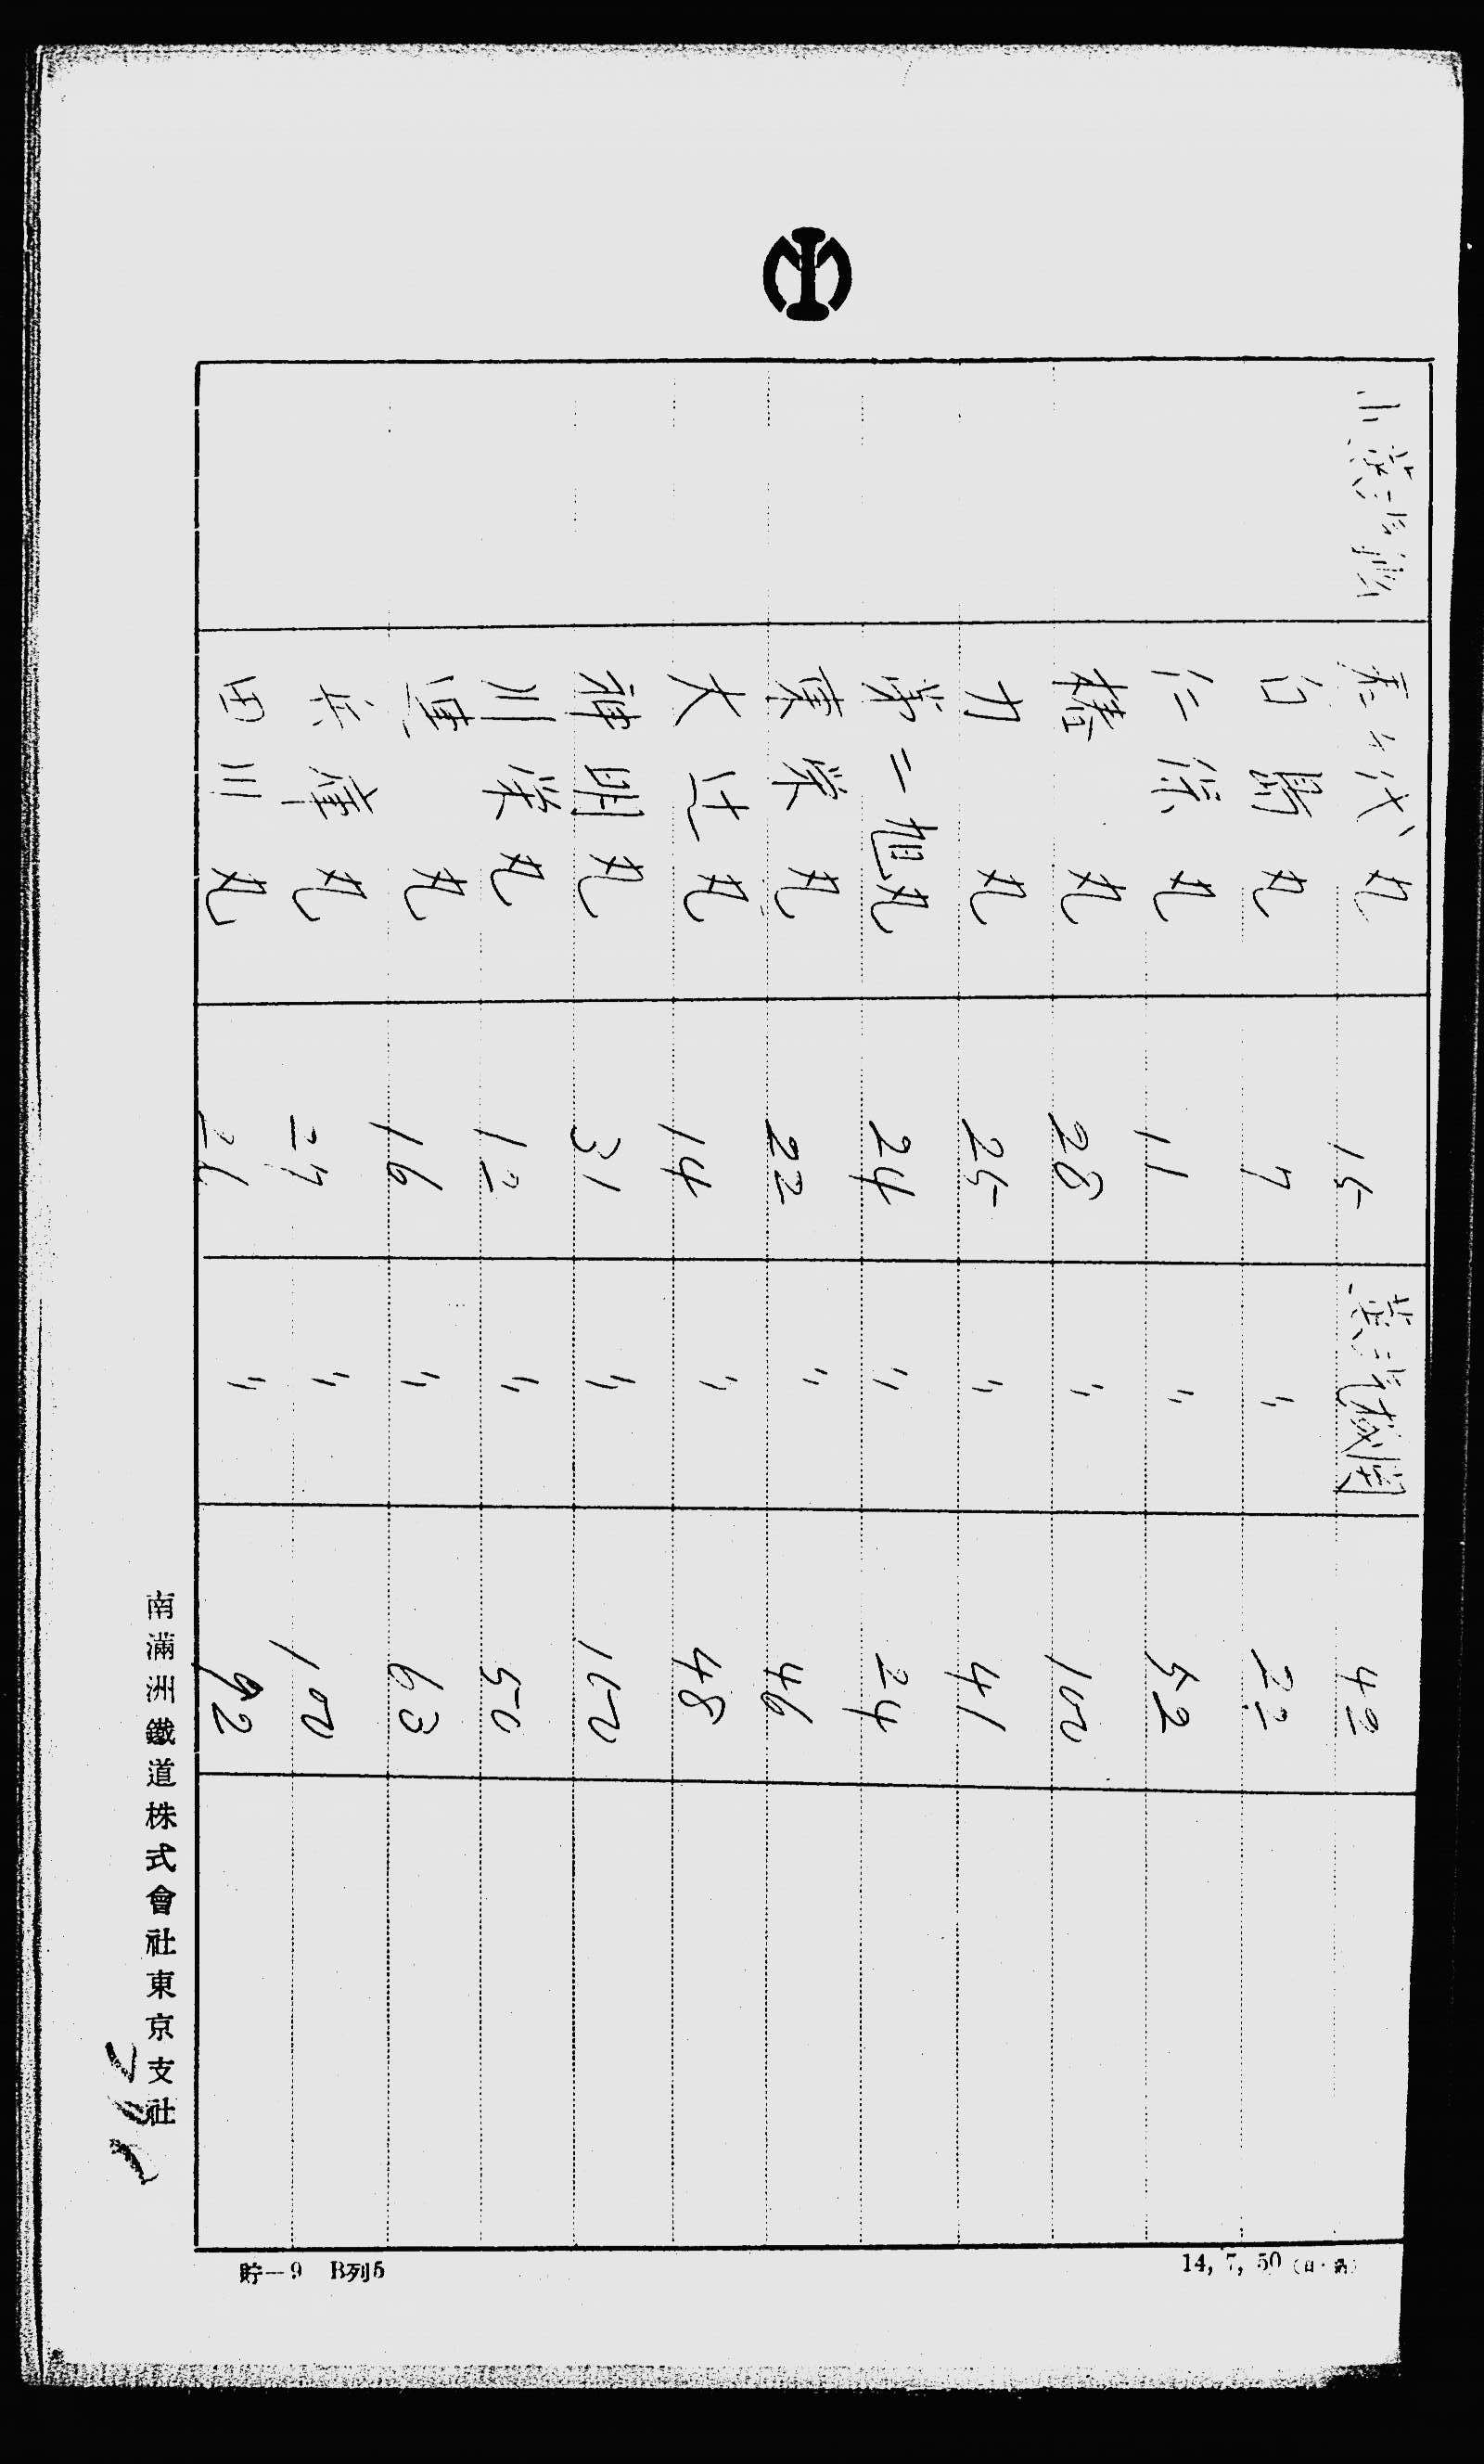 小蒸汽船 春千代丸 15 蒸汽機関 42
白鴎丸 7 〃 22
仁徐丸 11 〃 52
椿丸 28 〃 100
力丸 25 〃 41
第二旭丸 24 〃 24
東栄丸 22 〃 46
大辻丸 14 〃 48
神明丸 31 〃 100
川栄丸 12 〃 50
運丸 16 〃 63
兵庫丸 27 〃 100
西川丸 26 〃 92
南滿洲鐵道株式會社東京支社
貯—9 B列5
14, 7, 50